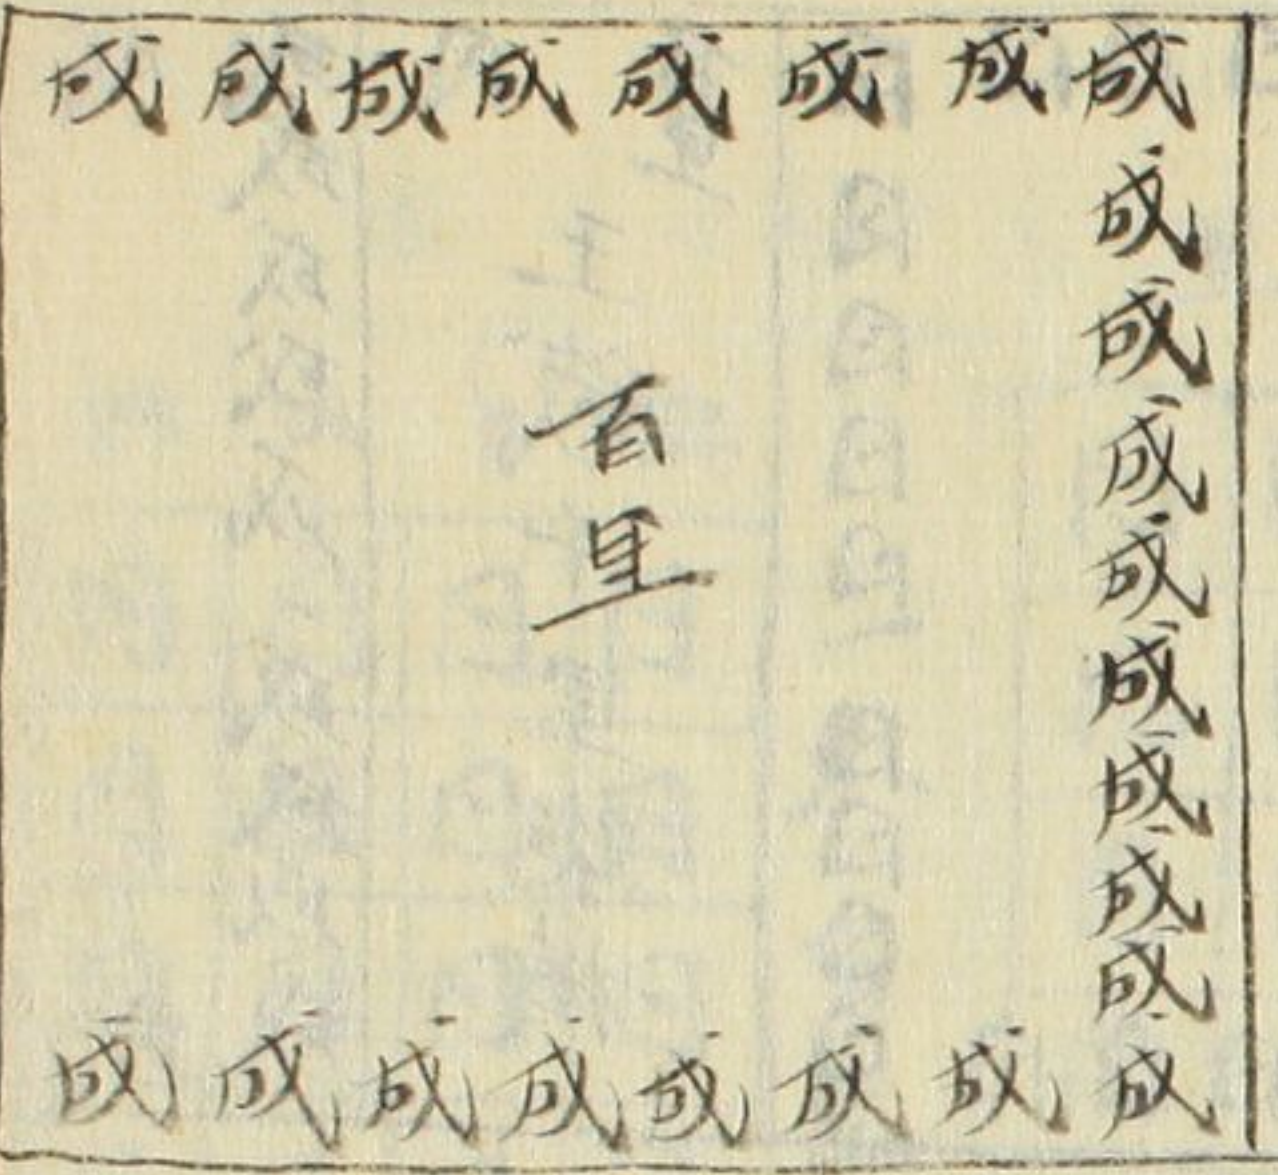 成成成成成成成成成成
成成成成成成成
百里
成成成成成成成